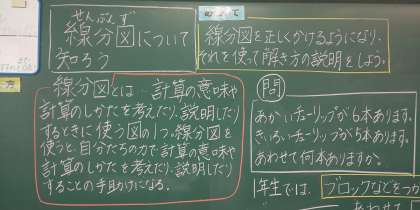 せんぶんず
線分図について
知ろう
めあて
線分図を正しくかけるようになり、
それを使って解き方の説明をしよう。
線分図とは…計算の意味や
計算のしかたを考えたり、説明したり
するときに使う図の1つ。線分図を
使うと、自分たちの力で計算の意味や
計算のしかたを考えたり、説明したり
することの手助けになる。
問
あかいチューリップが6本あります。
きいろいチューリップが5本あります。
あわせて何本ありますか。
1年生では、ブロックなどをつか
あわせて
方